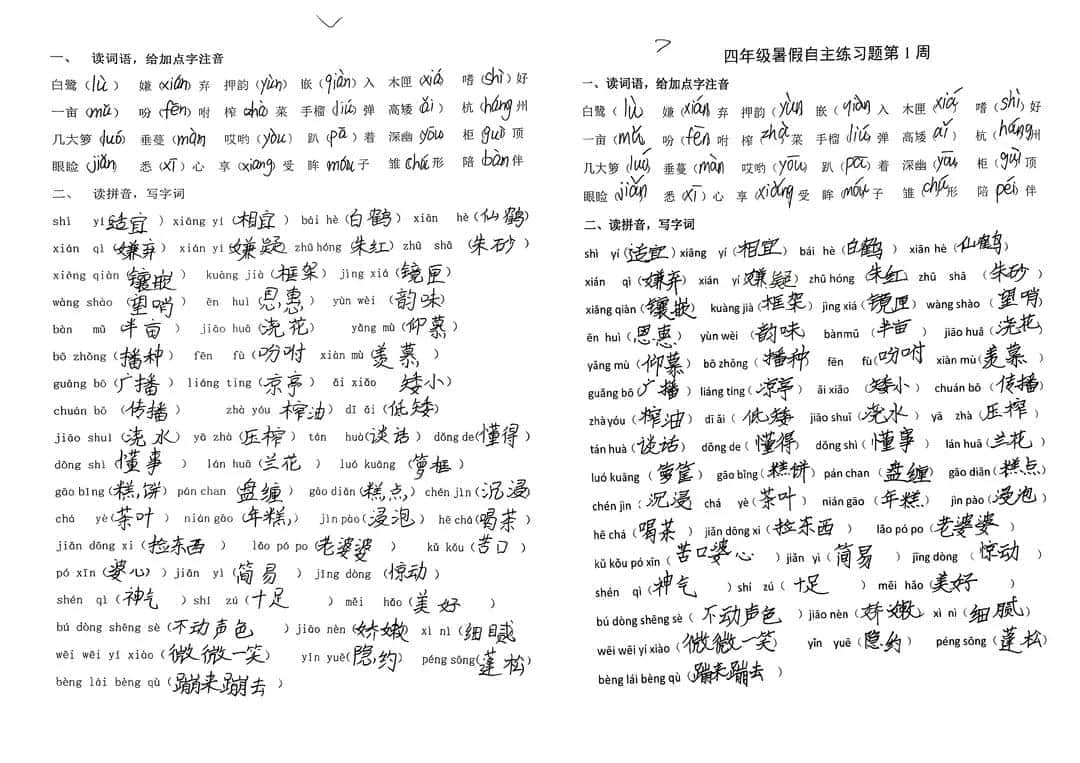 一、 读词语，给加点字注音
白鹭（lù） 嫌（xián）弃 押韵（yùn） 嵌（qiàn）入 木匣（xiá） 嗜（shì）好
一亩（mǔ） 吩（fēn）咐 榨（zhà）菜 手榴（liú）弹 高矮（ǎi） 杭（háng）州
几大箩（luó） 垂蔓（màn） 哎哟（yōu） 趴（pā）着 深幽（yōu） 柜（guì）顶
眼睑（jiǎn） 悉（xī）心 享（xiǎng）受 眸（móu）子 雏（chú）形 陪（bàn）伴
二、 读拼音，写字词
shì yí（适宜）xiāng yí（相宜）bái hè（白鹤）xiān hè（仙鹤）
xián qì（嫌弃）xián yí（嫌疑）zhū hóng（朱红）zhū shā（朱砂）
xiāng qiàn（镶嵌） kuàng jià（框架）jìng xiá（镜匣）
wàng shào（望哨） ēn huì（恩惠） yùn wèi（韵味）
bàn mǔ（半亩） jiāo huā（浇花） yǎng mù（仰慕）
bō zhǒng（播种） fēn fù（吩咐） xiàn mù（羡慕）
guǎng bō（广播） liáng tíng（凉亭） ǎi xiǎo（矮小）
chuán bō（传播） zhà yóu（榨油）dī ǎi（低矮）
jiāo shuǐ（浇水）yā zhà（压榨）tán huà（谈话）dǒng de（懂得）
dǒng shì（懂事） lán huā（兰花） luó kuāng（箩框）
gāo bǐng（糕饼）pán chan（盘缠） gāo diǎn（糕点）chén jìn（沉浸）
chá yè（茶叶） nián gāo（年糕） jìn pào（浸泡）hē chá（喝茶）
jiǎn dōng xi（捡东西） lǎo pó po（老婆婆） kǔ kǒu（苦口）
pó xīn（婆心）jiǎn yì（简易）jīng dòng（惊动）
shén qì（神气）shí zú（十足） měi hǎo（美好）
bú dòng shēng sè（不动声色）jiāo nèn（娇嫩）xì nì（细腻）
wēi wēi yí xiào（微微一笑） yǐn yuē（隐约）péng sōng（蓬松）
bèng lái bèng qù（蹦来蹦去）
四年级暑假自主练习题第1周
一、读词语，给加点字注音
白鹭（lù） 嫌（xián）弃 押韵（yùn） 嵌（qiàn）入 木匣（xiá） 嗜（shì）好
一亩（mǔ） 吩（fēn）咐 榨（zhà）菜 手榴（liú）弹 高矮（ǎi） 杭（háng）州
几大箩（luó） 垂蔓（màn） 哎哟（yōu） 趴（pā）着 深幽（yōu） 柜（guì）顶
眼睑（jiǎn） 悉（xī）心 享（xiǎng）受 眸（móu）子 雏（chú）形 陪（péi）伴
二、读拼音，写字词
shì yí（适宜）xiāng yí（相宜）bái hè（白鹤）xiān hè（仙鹤）
xián qì（嫌弃） xián yí（嫌疑）zhū hóng（朱红）zhū shā（朱砂）
xiāng qiàn（镶嵌） kuàng jià（框架）jìng xiá（镜匣）wàng shào（望哨）
ēn huì（恩惠） yùn wèi（韵味） bàn mǔ（半亩） jiāo huā（浇花）
yǎng mù（仰慕） bō zhǒng（播种） fēn fù（吩咐）xiàn mù（羡慕）
guǎng bō（广播）liáng tíng（凉亭）ǎi xiǎo（矮小）chuán bō（传播）
zhà yóu（榨油）dī ǎi（低矮）jiāo shuǐ（浇水）yā zhà（压榨）
tán huà（谈话）dǒng de（懂得）dǒng shì（懂事）lán huā（兰花）
luó kuāng（箩筐）gāo bǐng（糕饼）pán chan（盘缠）gāo diǎn（糕点）
chén jìn（沉浸）chá yè（茶叶）nián gāo（年糕）jìn pào（浸泡）
hē chá（喝茶）jiǎn dōng xi（捡东西）lǎo pó po（老婆婆）
kǔ kǒu pó xīn（苦口婆心）jiǎn yì（简易）jīng dòng（惊动）
shén qì（神气）shí zú（十足）měi hǎo（美好）
bú dòng shēng sè（不动声色）jiāo nèn（娇嫩）xì nì（细腻）
wēi wēi yí xiào（微微一笑） yǐn yuē（隐约）péng sōng（蓬松）
bèng lái bèng qù（蹦来蹦去）